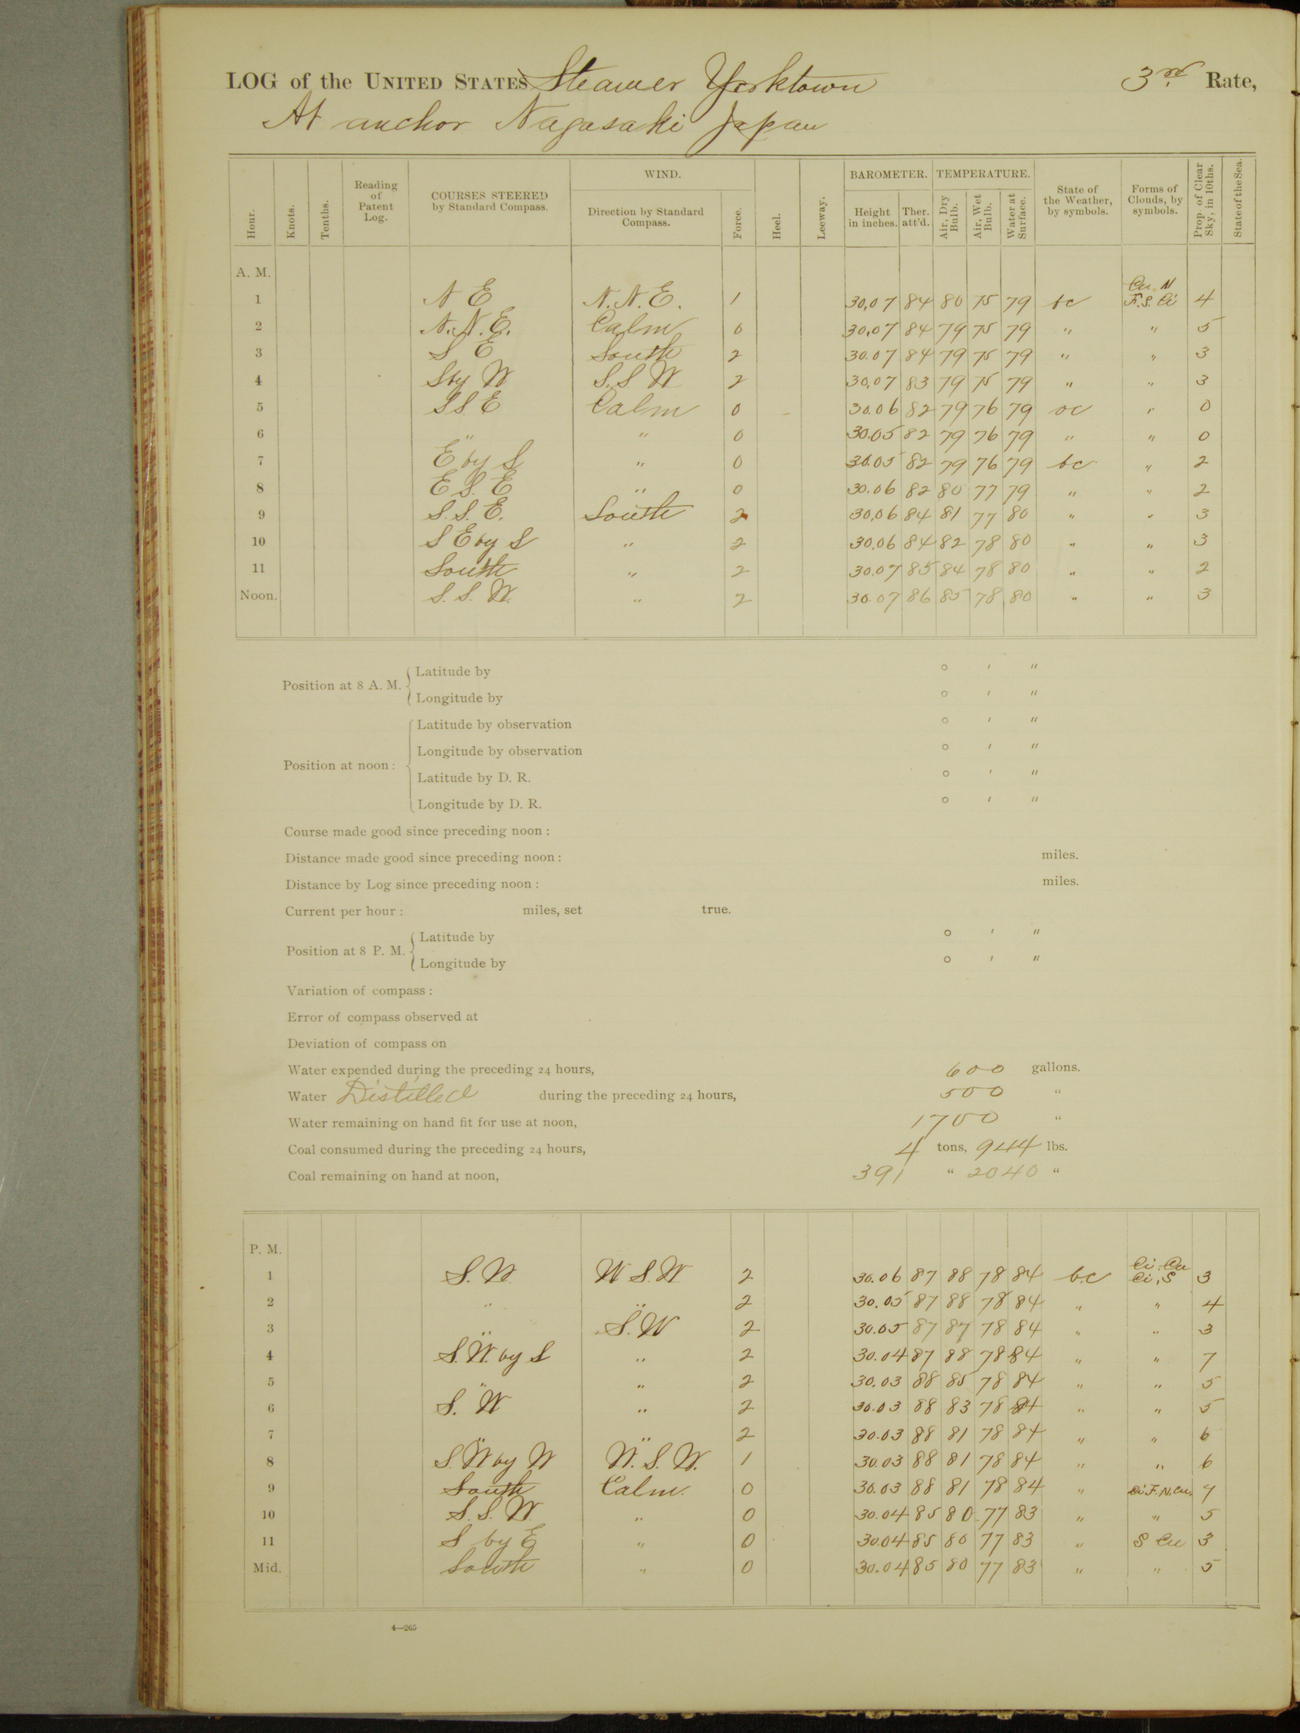 LOG of the UNITED STATES Steamer Yorktown 3rd Rate,
At anchor Nagasaki Japan
Hour. Knots. Tenths. Reading of Patent Log. COURSES STEERED by Standard Compass. WIND. Direction by Standard Compass. Force. Heel. Leeway. BAROMETER. Height in inches. Ther. att'd. TEMPERATURE. Air, Dry Bulb. Air, Wet Bulb. Water at Surface. State of the Weather, by symbols. Forms of Clouds, by symbols. Prop. of Clear Sky, in 10ths. State of the Sea.
A. M.
Cu. N
1 N E N. N. E. 1 30.07 84 80 75 79 bc F. S. Ci 4
2 N. N. E. Calm 0 30.07 84 79 75 79 " " 5
3 S E South 2 30.07 84 79 75 79 " " 3
4 S by W S. S W 2 30.07 83 79 75 79 " " 3
5 S S E Calm 0 30.06 82 79 76 79 oc " 0
6 " " 0 30.05 82 79 76 79 " " 0
7 E by S " 0 30.05 82 79 76 79 bc " 2
8 E S. E " 0 30.06 82 80 77 79 " " 2
9 S. S. E. South 2 30.06 84 81 77 80 " " 3
10 S E by S " 2 30.06 84 82 78 80 " " 3
11 South " 2 30.07 85 84 78 80 " " 2
Noon. S. S. W. " 2 30.07 86 85 78 80 " " 3
Position at 8 A. M. Latitude by ° ' "
Longitude by ° ' "
Position at noon: Latitude by observation ° ' "
Longitude by observation ° ' "
Latitude by D. R. ° ' "
Longitude by D. R. ° ' "
Course made good since preceding noon:
Distance made good since preceding noon: miles.
Distance by Log since preceding noon: miles.
Current per hour: miles, set true.
Position at 8 P. M. Latitude by ° ' "
Longitude by ° ' "
Variation of compass:
Error of compass observed at
Deviation of compass on
Water expended during the preceding 24 hours, 600 gallons.
Water Distilled during the preceding 24 hours, 500 "
Water remaining on hand fit for use at noon, 1700 "
Coal consumed during the preceding 24 hours, 4 tons, 944 lbs.
Coal remaining on hand at noon, 391 " 2040 "
P. M.
Ci. Cu
1 S. W W S. W 2 30.06 87 88 78 84 b.c Ci, S 3
2 " " 2 30.05 87 88 78 84 " " 4
3 " S. W 2 30.05 87 87 78 84 " " 3
4 S. W. by S " 2 30.04 87 88 78 84 " " 7
5 " " 2 30.03 88 85 78 84 " " 5
6 S. W " 2 30.03 88 83 78 84 " " 5
7 " " 2 30.03 88 81 78 84 " " 6
8 S. W by W W. S. W. 1 30.03 88 81 78 84 " " 6
9 South Calm. 0 30.03 88 81 78 84 " F. N. Cu. 7
10 S. S. W " 0 30.04 85 80 77 83 " " 5
11 S by E " 0 30.04 85 80 77 83 " S Cu 3
Mid. South " 0 30.04 85 80 77 83 " " 5
4—265